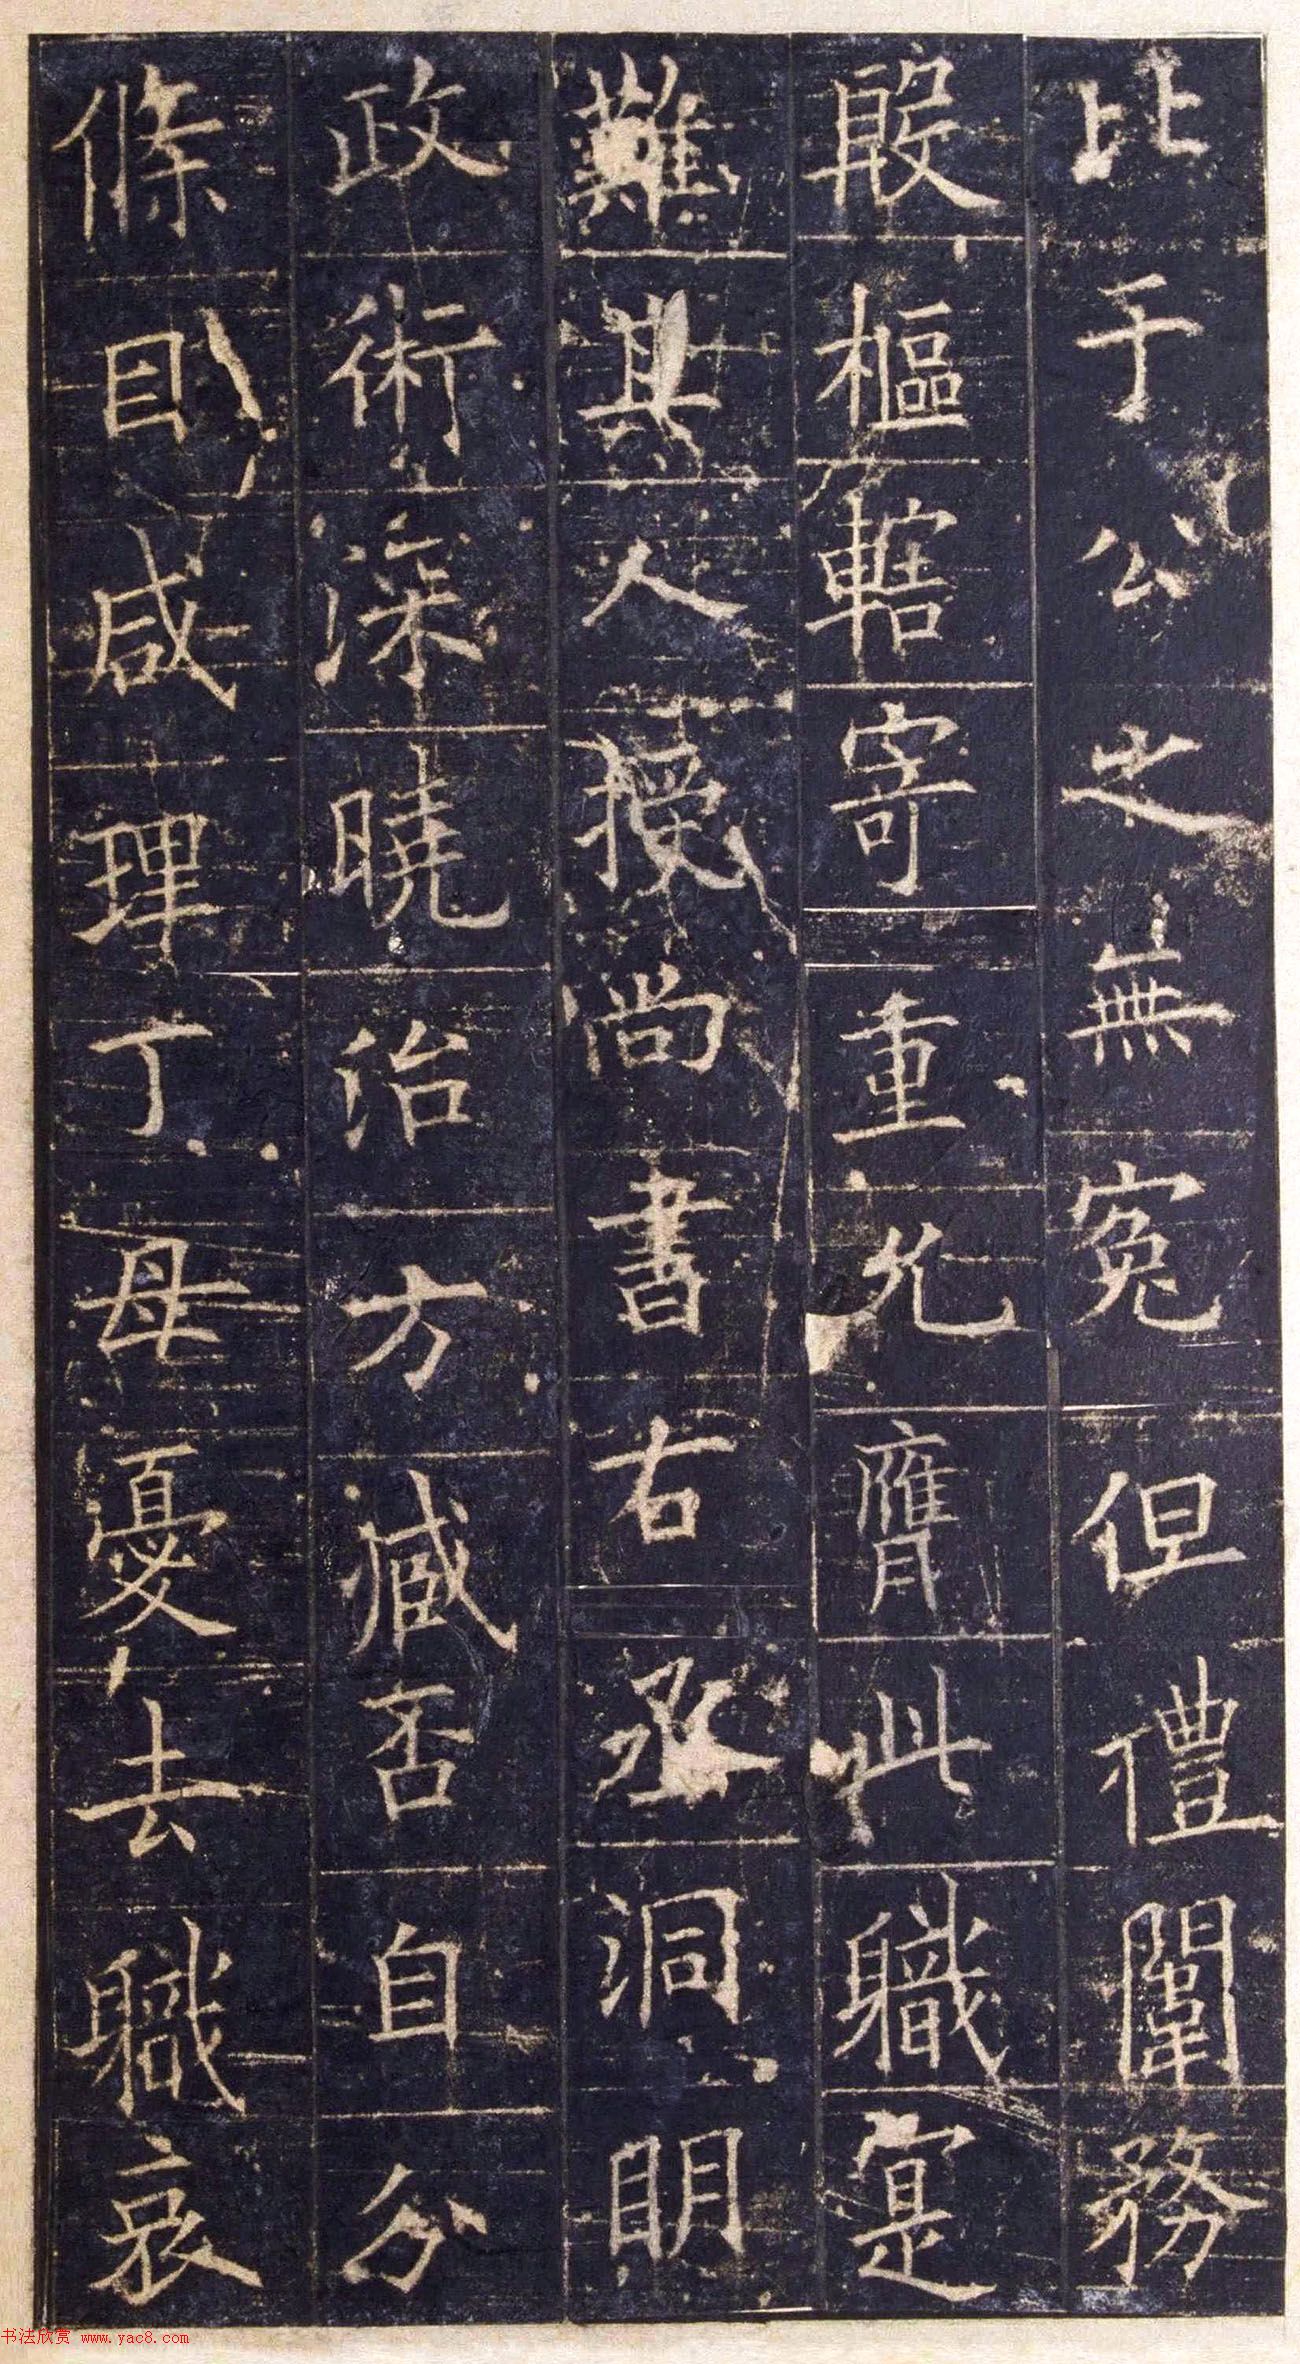 比于公之無寃但禮闈務
殷樞轄寄重允膺此職寔
難其人授尚書右丞洞明
政術深曉治方臧否自分
條目咸理丁母憂去職哀
书法欣赏 www.yac8.com